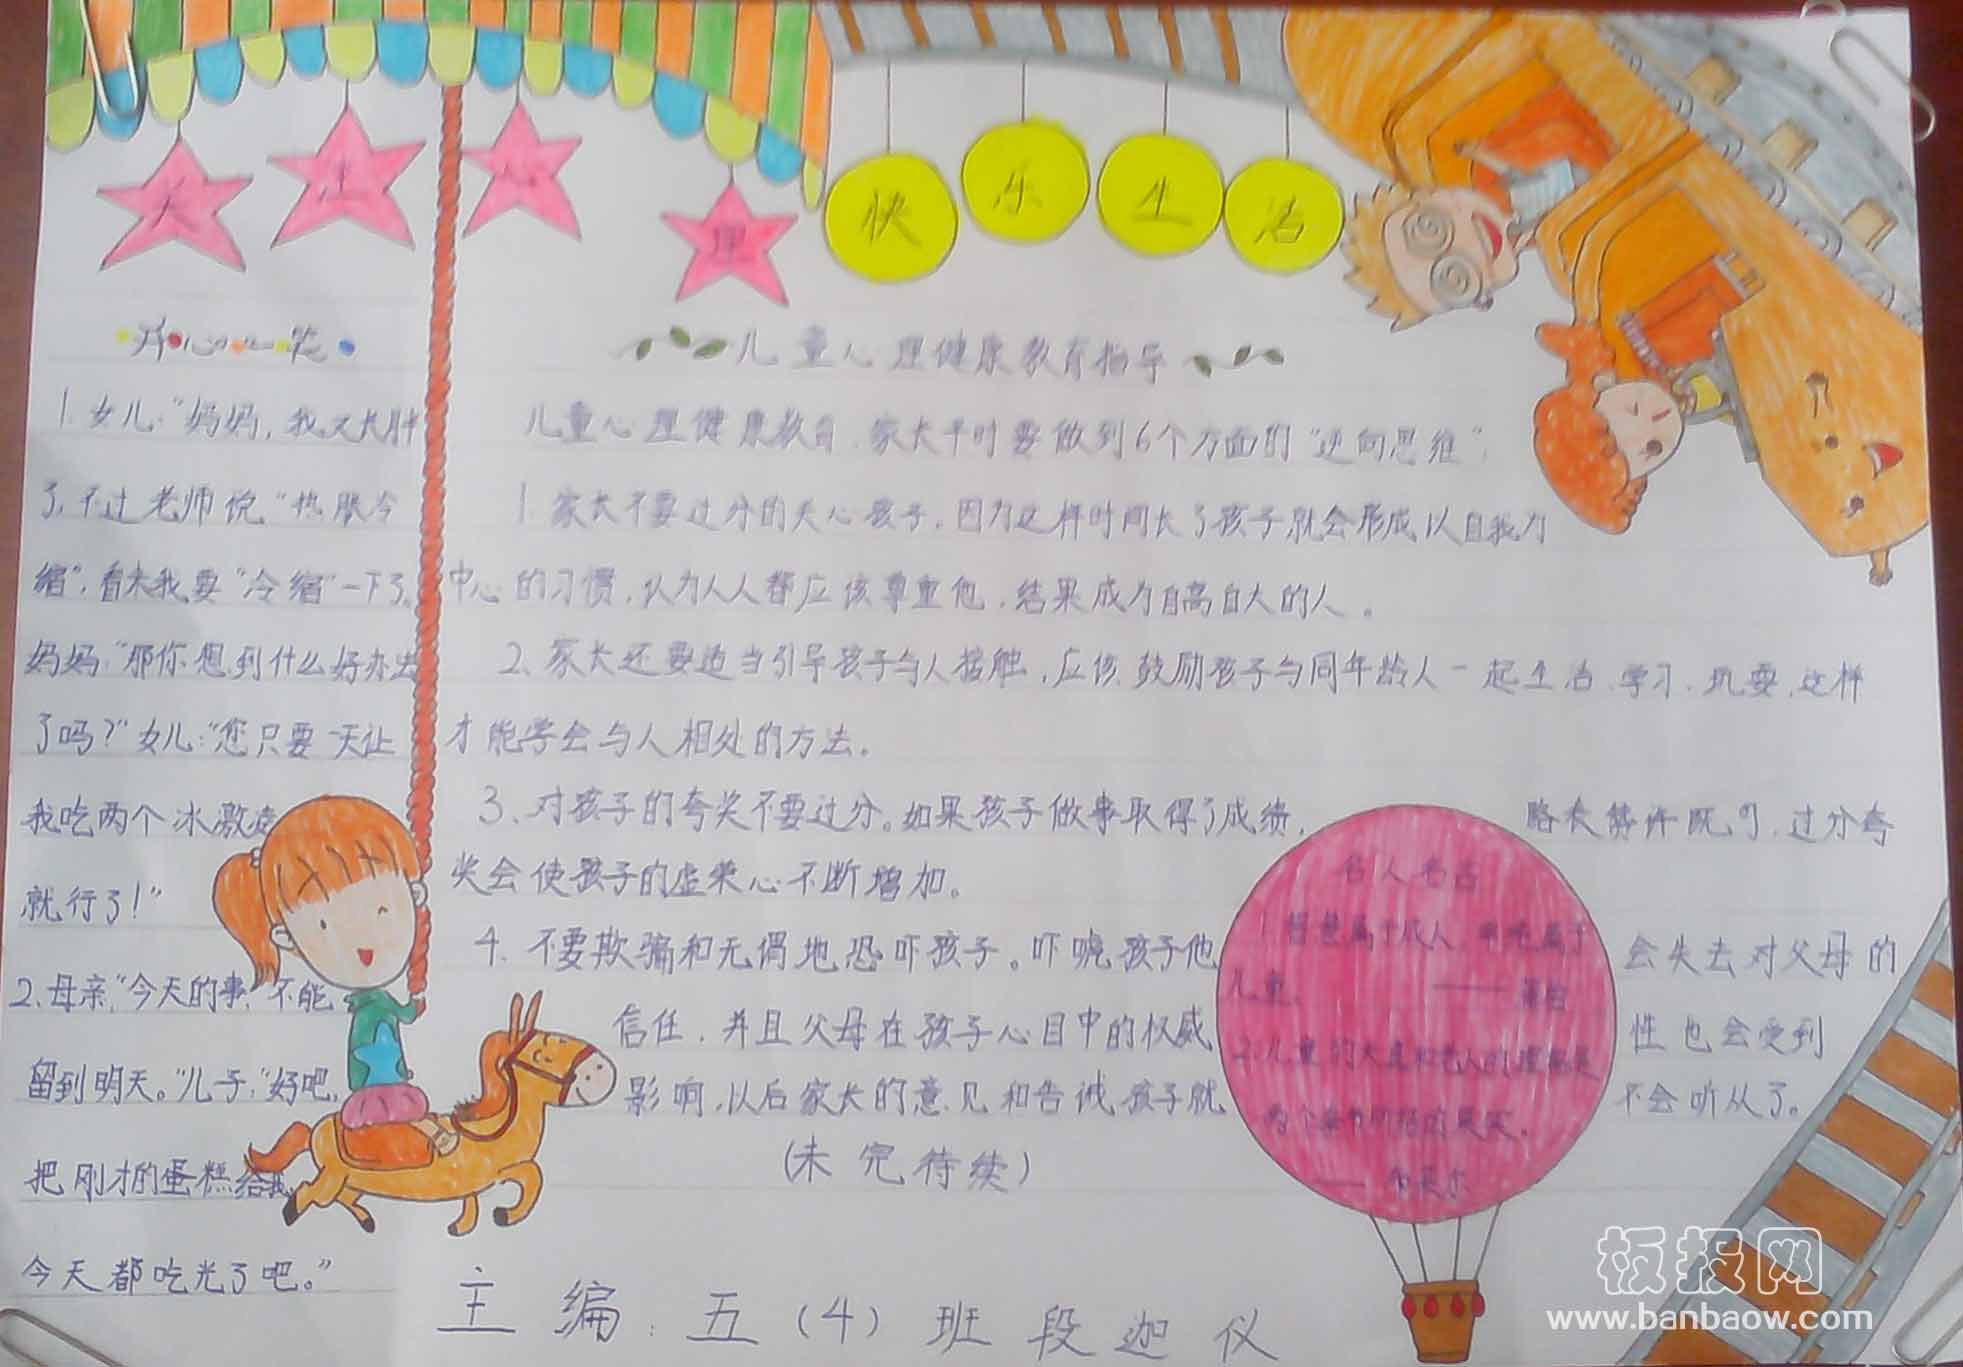 关注心理
快乐生活
开心一笑
1.女儿:"妈妈,我又长胖
了,不过老师说"热胀冷
缩",看来我要"冷缩"一下了。
妈妈:"那你想到什么好办法
了吗?"女儿:"您只要一天让
我吃两个冰激凌
就行了!"
2、母亲:"今天的事,不能
留到明天。"儿子:"好吧,
把刚才的蛋糕给我
今天都吃光了吧。"
儿童心理健康教育指导
儿童心理健康教育,家长平时要做到6个方面的"逆向思维":
1.家长不要过分的关心孩子,因为这样时间长了孩子就会形成以自我为
中心的习惯,认为人人都应该尊重他,结果成为自高自大的人。
2、家长还要适当引导孩子与人接触,应该鼓励孩子与同年龄人一起生活、学习、玩耍,这样
才能学会与人相处的方法。
3、对孩子的夸奖不要过分。如果孩子做事取得了成绩, 略表赞许既可,过分夸
奖会使孩子的虚荣心不断增加。
4.不要欺骗和无谓地恐吓孩子。吓唬孩子他 会失去对父母的
信任,并且父母在孩子心目中的权威 性也会受到
影响,以后家长的意见和告诫孩子就 不会听从了。
(未完待续)
名人名言
1.智慧属于成人,单纯属于
儿童。
2.儿童的天真和老人的理智是
两个季节所结的果实。
主编:五(4)班段迦仪
板报网
www.banbaow.com